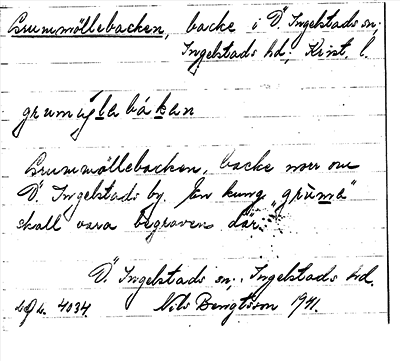 Grummöllebacken, backe i Ö. Ingelstads sn;
Ingelstads hd; Krist. l.
grumọ́labákan
Grummöllebacken, backe norr om
Ö. Ingelstads by. En kung "grùma"
skall vara begraven där.
Ö. Ingelstads sn; Ingelstads hd.
4034. Nils Bengtsson 1941.